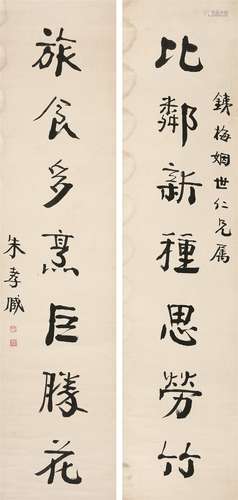 比鄰新種思勞竹
鐵梅姻世仁兄屬
旅食多烹巨勝花
朱孝臧